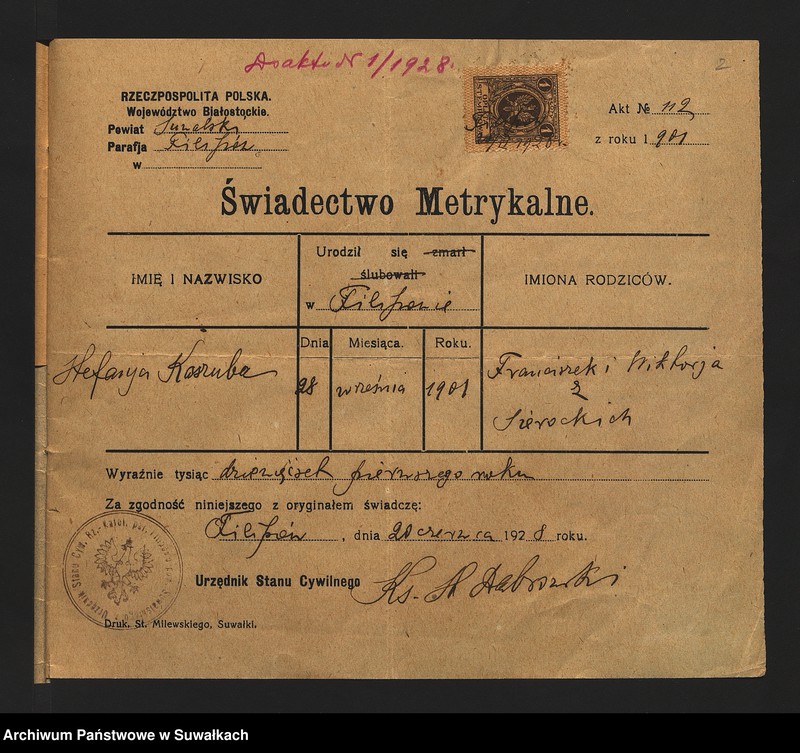 Do aktu N 1/1928.
2
RZECZPOSPOLITA POLSKA.
Województwo Białostockie.
Powiat Suwalski
Parafja Filipów
w
Akt № 112
z roku 1901
1 1
Świadectwo Metrykalne.
IMIĘ I NAZWISKO
Urodził się zmarł
ślubowali
w Filipowie
IMIONA RODZICÓW.
Dnia Miesiąca. Roku.
Stefanja Koszuba
28 września 1901
Franciszek i Wiktorja
z
Sierockich
Wyraźnie tysiąc dziewięćset pierwszego roku
Za zgodność niniejszego z oryginałem świadczę:
Filipów, dnia 20 czerwca 1928 roku.
Urzędnik Stanu Cywilnego Ks. St Dąbrowski
Druk. St. Milewskiego, Suwałki.
Archiwum Państwowe w Suwałkach